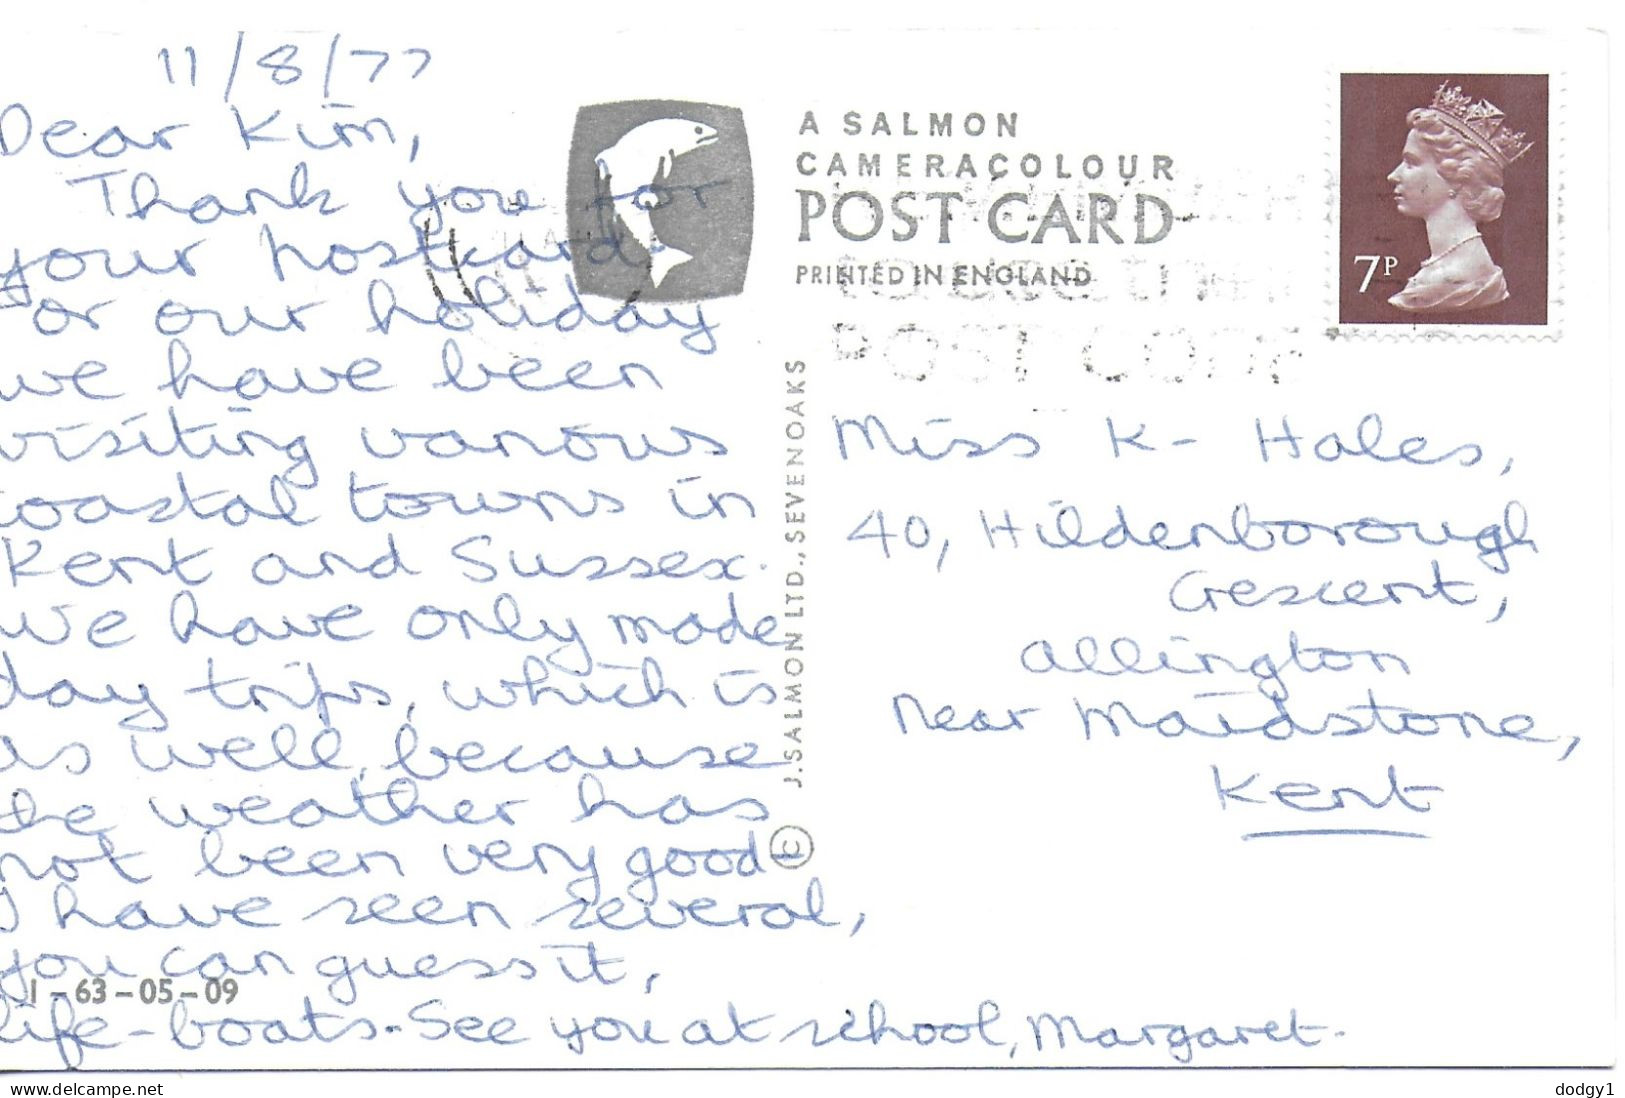 11/8/77
Dear Kim,
Thank you for
your postcard
For our holiday
we have been
visiting various
coastal towns in
Kent and Sussex.
We have only made
day trips, which is
as well, because
the weather has
not been very good-
I have seen several,
you can guess it,
life-boats. See you at school, Margaret.
1-63-05-09
A SALMON
CAMERACOLOUR
POST CARD
PRINTED IN ENGLAND
POST CODE
7P
J. SALMON LTD., SEVENOAKS ©
Miss K- Hales,
40, Hildenborough
Crescent,
Allington
Near Maidstone,
Kent
delcampe.net
dodgy1